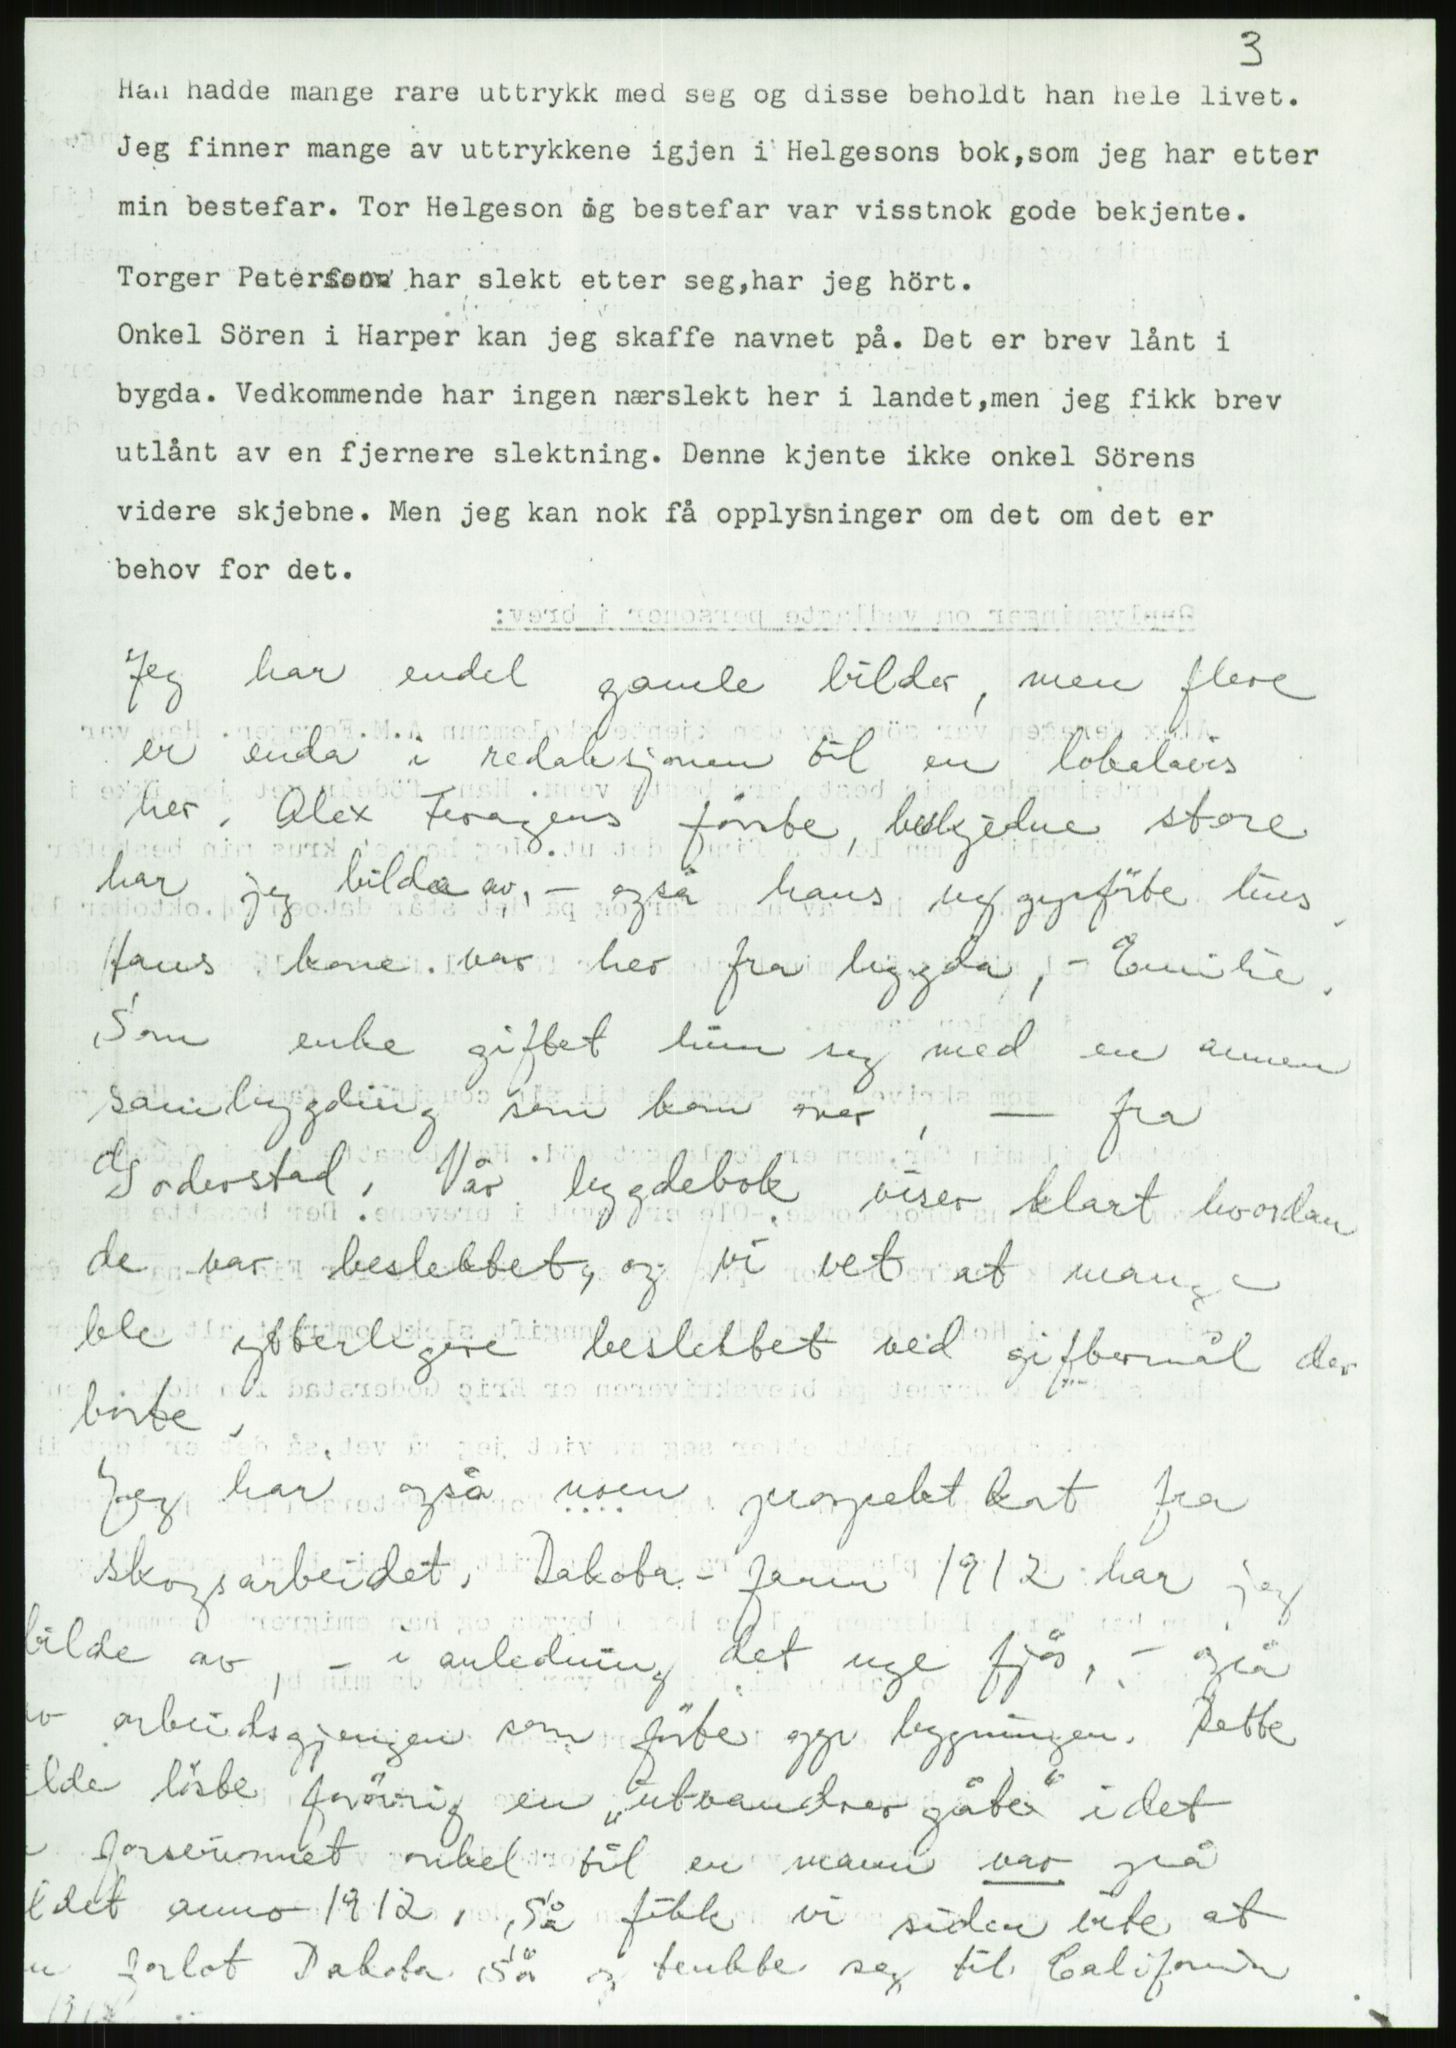 3
Han hadde mange rare uttrykk med seg og disse beholdt han hele livet.
Jeg finner mange av uttrykkene igjen i Helgesons bok,som jeg har etter
min bestefar. Tor Helgeson og bestefar var visstnok gode bekjente.
Torger Peterson har slekt etter seg,har jeg hört.
Onkel Sören i Harper kan jeg skaffe navnet på. Det er brev lånt i
bygda. Vedkommende har ingen nærslekt her i landet,men jeg fikk brev
utlånt av en fjernere slektning. Denne kjente ikke onkel Sörens
videre skjebne. Men jeg kan nok få opplysninger om det om det er
behov for det.
Jeg har endel gamle bilder, men flere
er enda i redaksjonen til en lokalavis
her. Alex Feragens förste, beskjedne store
har jeg bilde av, - også hans nyoppförte hus.
Hans kone var her fra bygda, - Emilie.
Som enke giftet hun seg med en annen
sambygding som kom over, — fra
Goderstad. Vår bygdebok viser klart hvordan
de var beslektet, og vi vet at mange
ble ytterligere beslektet ved giftermål der
borte.
Jeg har også noen prospektkort fra
skogsarbeidet. Dakota-farm 1912 har jeg
bilde av, - i anledning det nye fjös, - også
av arbeidsgjengen som förte opp bygningen. Dette
ilde löste forövrig en „utvandrer gåte" idet
forsvunnet onkel til en mann var på
ldet anno 1912. Så fikk vi siden vite at
n forlot Dakota så og tenkte seg til California